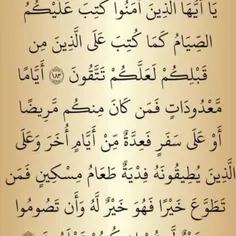 يَا أَيُّهَا الَّذِينَ آمَنُوا كُتِبَ عَلَيْكُمُ
الصِّيَامُ كَمَا كُتِبَ عَلَى الَّذِينَ مِن
قَبْلِكُمْ لَعَلَّكُمْ تَتَّقُونَ ﴿١٨٣﴾ أَيَّامًا
مَّعْدُودَاتٍ فَمَن كَانَ مِنكُم مَّرِيضًا
أَوْ عَلَى سَفَرٍ فَعِدَّةٌ مِّنْ أَيَّامٍ أُخَرَ وَعَلَى
الَّذِينَ يُطِيقُونَهُ فِدْيَةٌ طَعَامُ مِسْكِينٍ فَمَن
تَطَوَّعَ خَيْرًا فَهُوَ خَيْرٌ لَّهُ وَأَن تَصُومُوا